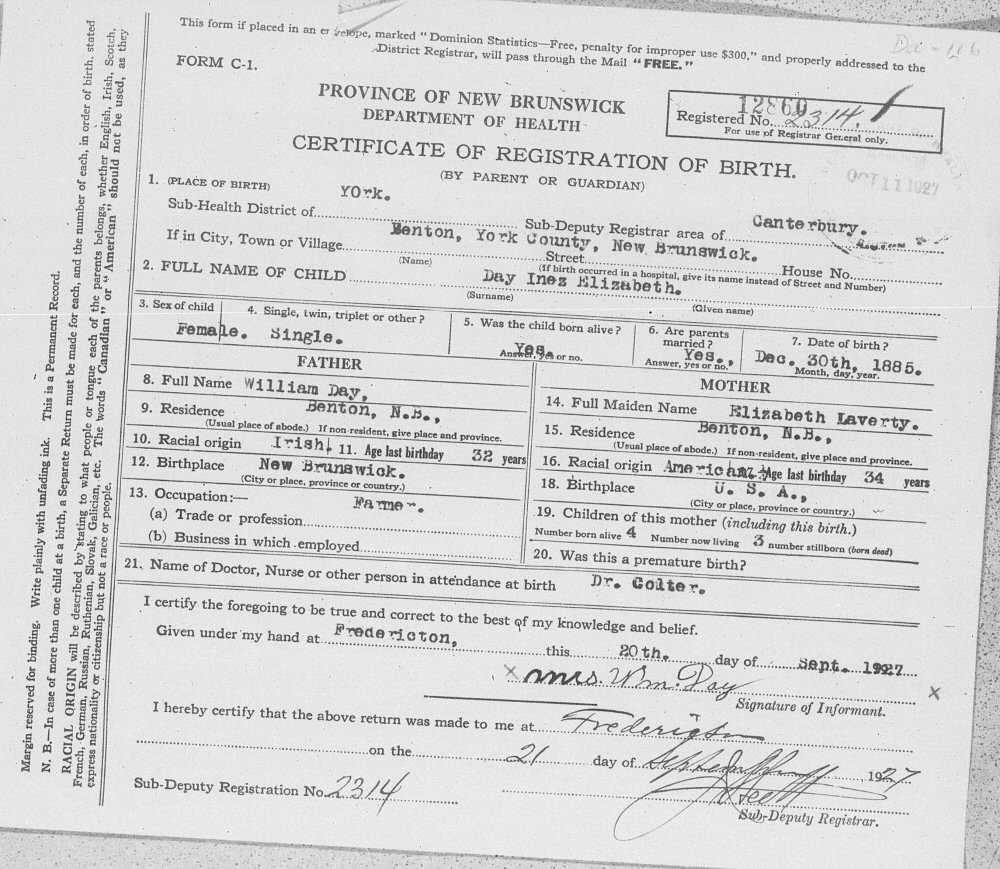 This form if placed in an envelope, marked "Dominion Statistics—Free, penalty for improper use $300," and properly addressed to the
District Registrar, will pass through the Mail "FREE."
FORM C-1.
PROVINCE OF NEW BRUNSWICK
DEPARTMENT OF HEALTH
12860
Registered No. 2314.
For use of Registrar General only.
CERTIFICATE OF REGISTRATION OF BIRTH.
(BY PARENT OR GUARDIAN)
OCT 11 1927
1. (PLACE OF BIRTH) York.
Sub-Health District of Sub-Deputy Registrar area of Canterbury.
If in City, Town or Village Benton, York County, New Brunswick. Street House No.
(Name) (If birth occurred in a hospital, give its name instead of Street and Number)
2. FULL NAME OF CHILD Day Inez Elizabeth.
(Surname) (Given name)
3. Sex of child 4. Single, twin, triplet or other? 5. Was the child born alive? 6. Are parents married? 7. Date of birth?
Female. Single. Yes. Yes., Dec. 30th, 1885.
Answer, yes or no. Answer, yes or no. Month, day, year.
FATHER
8. Full Name William Day,
9. Residence Benton, N.B.,
(Usual place of abode.) If non-resident, give place and province.
10. Racial origin Irish. 11. Age last birthday 32 years
12. Birthplace New Brunswick.
(City or place, province or country.)
13. Occupation:— Farmer.
(a) Trade or profession
(b) Business in which employed
MOTHER
14. Full Maiden Name Elizabeth Laverty.
15. Residence Benton, N.B.,
(Usual place of abode.) If non-resident, give place and province.
16. Racial origin American. 17. Age last birthday 34 years
18. Birthplace U. S. A.,
(City or place, province or country.)
19. Children of this mother (including this birth.)
Number born alive 4 Number now living 3 number stillborn (born dead)
20. Was this a premature birth?
21. Name of Doctor, Nurse or other person in attendance at birth Dr. Colter.
I certify the foregoing to be true and correct to the best of my knowledge and belief.
Given under my hand at Fredericton, this 20th. day of Sept. 1927
x Mrs. Wm. Day x
Signature of Informant.
I hereby certify that the above return was made to me at Fredericton
on the 21 day of September 1927
Sub-Deputy Registration No. 2314
Sub-Deputy Registrar.
Margin reserved for binding. Write plainly with unfading ink. This is a Permanent Record.
N. B.—In case of more than one child at a birth, a Separate Return must be made for each, and the number of each, in order of birth, stated
RACIAL ORIGIN will be described by stating to what people or tongue each of the parents belongs, whether English, Irish, Scotch,
French, German, Russian, Ruthenian, Slovak, Galician, etc. The words "Canadian" or "American" should not be used, as they
express nationality or citizenship but not a race or people.